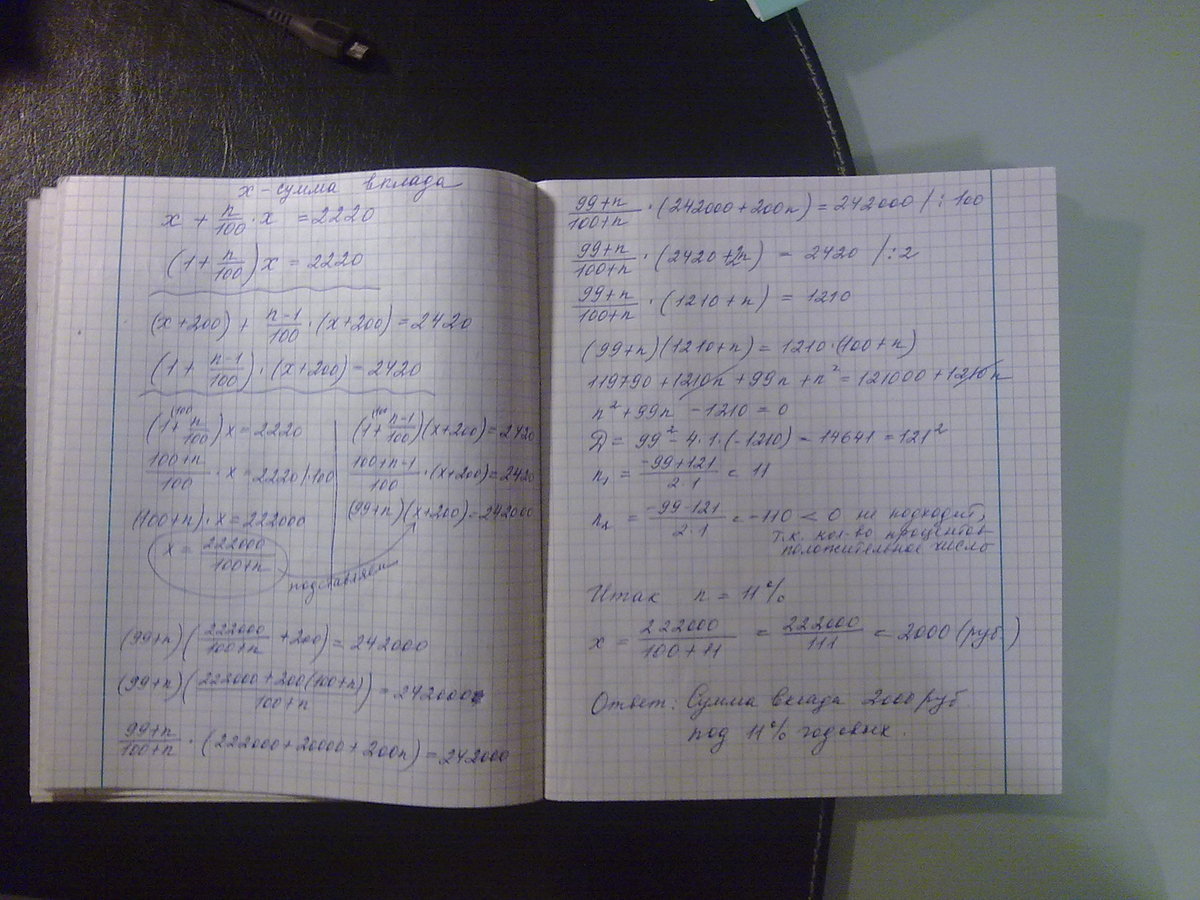 x – сумма вклада
x + n/100 · x = 2220
(1 + n/100) x = 2220
(x+200) + n-1/100 · (x+200) = 2420
(1 + n-1/100) · (x+200) = 2420
(1 + n/100) x = 2220
100+n/100 · x = 2220 / · 100
(100+n) · x = 222000
x = 222000/100+n
подставляем
(1 + n-1/100)(x+200) = 2420
100+n-1/100 · (x+200) = 2420
(99+n)(x+200) = 242000
(99+n)(222000/100+n + 200) = 242000
(99+n)(222000+200(100+n)/100+n) = 242000
99+n/100+n · (222000+20000+200n) = 242000
99+n/100+n · (242000+200n) = 242000 / : 100
99+n/100+n · (2420+2n) = 2420 / : 2
99+n/100+n · (1210+n) = 1210
(99+n)(1210+n) = 1210·(100+n)
119790 + 1210n + 99n + n² = 121000 + 1210n
n² + 99n - 1210 = 0
D = 99² - 4·1·(-1210) = 14641 = 121²
n₁ = -99+121/2·1 = 11
n₂ = -99-121/2·1 = -110 < 0 не подходит,
т.к. кол-во процентов
положительное число
Итак n = 11%
x = 222000/100+11 = 222000/111 = 2000 (руб)
Ответ: Сумма вклада 2000 руб
под 11% годовых.